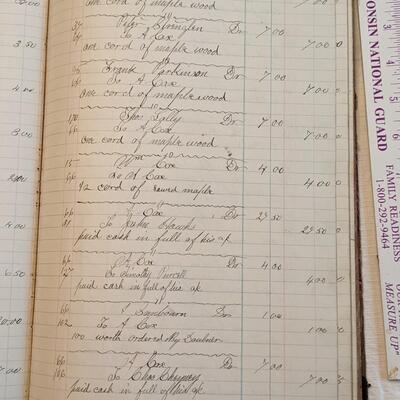 one cord of maple wood
37 Peter Stringlen Dr 7.00
66 To A Cox 7.00
one cord of maple wood
10
95 Frank Parkinson Dr 7.00
66 To A Cox 7.00
one cord of maple wood
10
170 Thos Lally Dr 7.00
66 To A Cox 7.00
one cord of maple wood
10
15 Wm Cox Dr 4.00
66 To A Cox 4.00
1/2 cord of round maple
66 A Cox Dr 23.50
To John Hawks 23.50
paid cash in full of his ak
66 A Cox Dr 4.00
127 To Timothy Purcell 4.00
paid cash in full of his ak
66 Sanbourn Dr 1.00
102 To A Cox 1.00
100 worth ordered by Sanborn
66 A Cox Dr 7.00
166 To Chas Chapman 7.00
paid cash in full of his ak
3.50
4.00
3.00
4.00
6.50
7.00
CONSIN NATIONAL GUARD
FAMILY READINESS
1-800-292-9464
MEASURE UP"